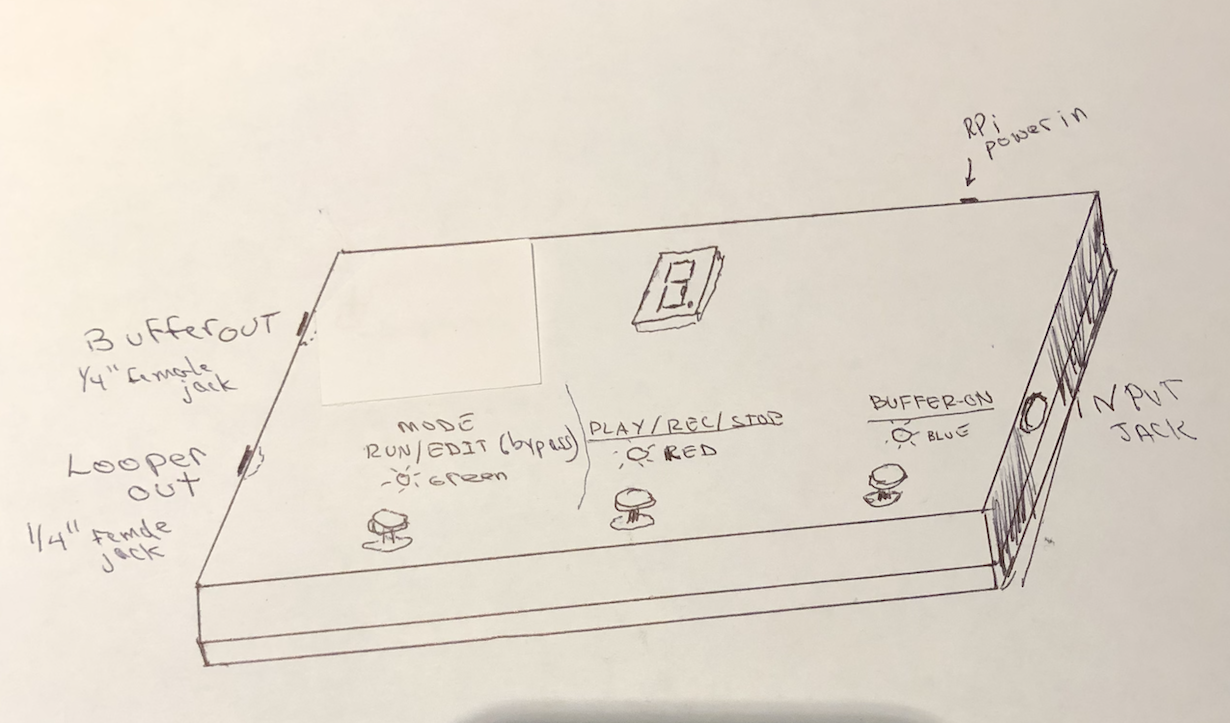 RPi
power in
Buffer OUT
1/4" female
jack
Looper
OUT
1/4" female
jack
MODE
RUN/EDIT (bypass)
Green
PLAY/REC/STOP
RED
BUFFER-ON
BLUE
8.
INPUT
JACK